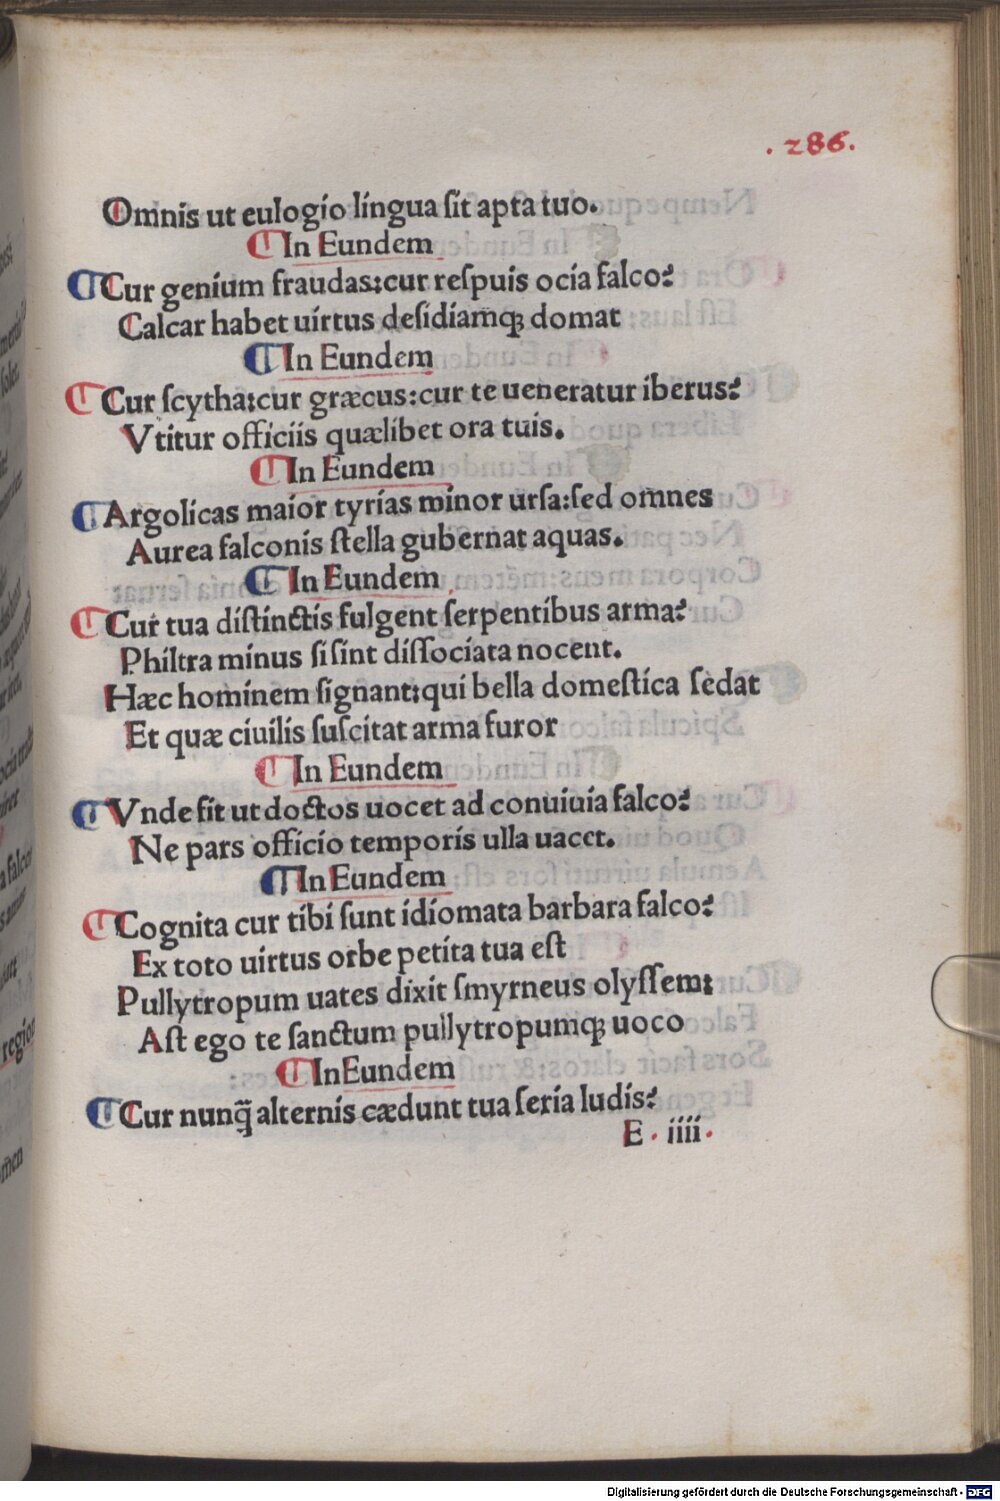 .286.
Omnis ut eulogio lingua ſit apta tuo.
¶In Eundem
¶Cur genium fraudas:cur reſpuis ocia falco?
Calcar habet uirtus deſidiamqꝫ domat
¶In Eundem
¶Cur ſcytha:cur græcus:cur te ueneratur iberus?
Vtitur officiis quælibet ora tuis.
¶In Eundem
¶Argolicas maior tyrias minor urſa:ſed omnes
Aurea falconis ſtella gubernat aquas.
¶In Eundem
¶Cur tua diſtinctis fulgent ſerpentibus arma?
Philtra minus ſi ſint diſſociata nocent.
Hæc hominem ſignant:qui bella domeſtica ſedat
Et quæ ciuilis ſuſcitat arma furor
¶In Eundem
¶Vnde fit ut doctos uocet ad conuiuia falco?
Ne pars officio temporis ulla uacet.
¶In Eundem
¶Cognita cur tibi ſunt idiomata barbara falco?
Ex toto uirtus orbe petita tua eſt
Pullytropum uates dixit ſmyrneus olyſſem:
Aſt ego te ſanctum pullytropumqꝫ uoco
¶In Eundem
¶Cur nunq̃ alternis cædunt tua ſeria ludis?
E . iiii.
Digitalisierung gefördert durch die Deutsche Forschungsgemeinschaft - DFG